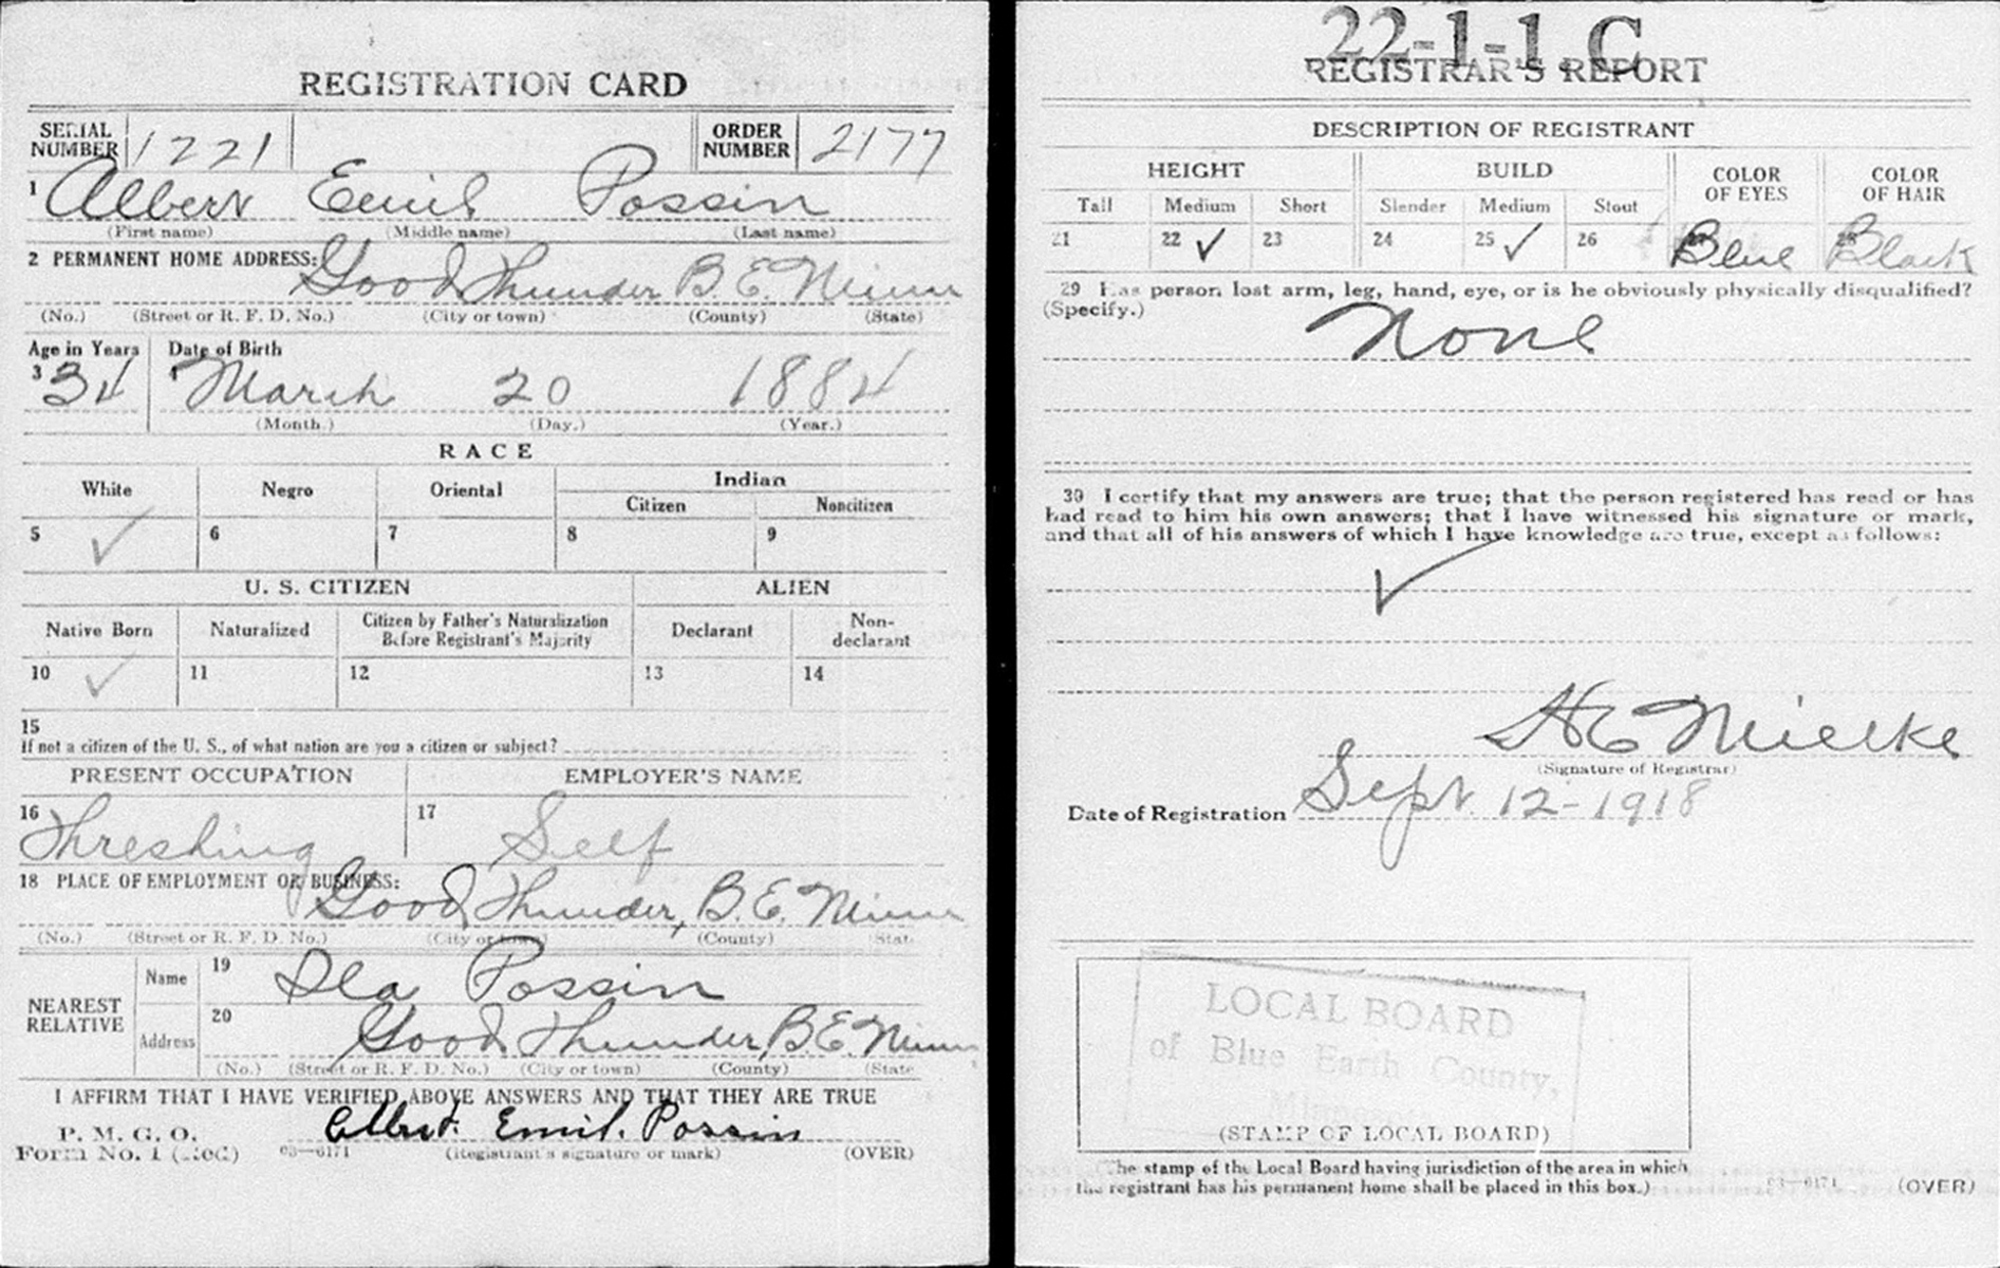 REGISTRATION CARD
SERIAL NUMBER 1221 ORDER NUMBER 2177
1 Albert Emil Possin
(First name) (Middle name) (Last name)
2 PERMANENT HOME ADDRESS: Good Thunder B.E. Minn
(No.) (Street or R. F. D. No.) (City or town) (County) (State)
Age in Years Date of Birth
3 34 4 March 20 1884
(Month.) (Day.) (Year.)
RACE
White Negro Oriental Indian
Citizen Noncitizen
5 ✓ 6 7 8 9
U. S. CITIZEN ALIEN
Native Born Naturalized Citizen by Father's Naturalization Before Registrant's Majority Declarant Non-declarant
10 ✓ 11 12 13 14
15
If not a citizen of the U. S., of what nation are you a citizen or subject?
PRESENT OCCUPATION EMPLOYER'S NAME
16 Threshing 17 Self
18 PLACE OF EMPLOYMENT OR BUSINESS: Good Thunder, B.E. Minn
(No.) (Street or R. F. D. No.) (City or town) (County) (State
NEAREST RELATIVE Name 19 Ida Possin
Address 20 Good Thunder, B.E. Minn
(No.) (Street or R. F. D. No.) (City or town) (County) (State
I AFFIRM THAT I HAVE VERIFIED ABOVE ANSWERS AND THAT THEY ARE TRUE
P. M. G. O.
Form No. 1 (Red) 03—6171 Albert. Emil. Possin
(Registrant's signature or mark) (OVER)
22-1-1.C
REGISTRAR'S REPORT
DESCRIPTION OF REGISTRANT
HEIGHT BUILD COLOR OF EYES COLOR OF HAIR
Tall Medium Short Slender Medium Stout
21 22 ✓ 23 24 25 ✓ 26 Blue 28 Black
29 Has person lost arm, leg, hand, eye, or is he obviously physically disqualified?
(Specify.) None
30 I certify that my answers are true; that the person registered has read or has
had read to him his own answers; that I have witnessed his signature or mark,
and that all of his answers of which I have knowledge are true, except as follows:
✓
HC Mielke
(Signature of Registrar)
Date of Registration Sept. 12-1918
LOCAL BOARD
of Blue Earth County,
Minnesota
(STAMP OF LOCAL BOARD)
(The stamp of the Local Board having jurisdiction of the area in which
the registrant has his permanent home shall be placed in this box.)
03—6171 (OVER)